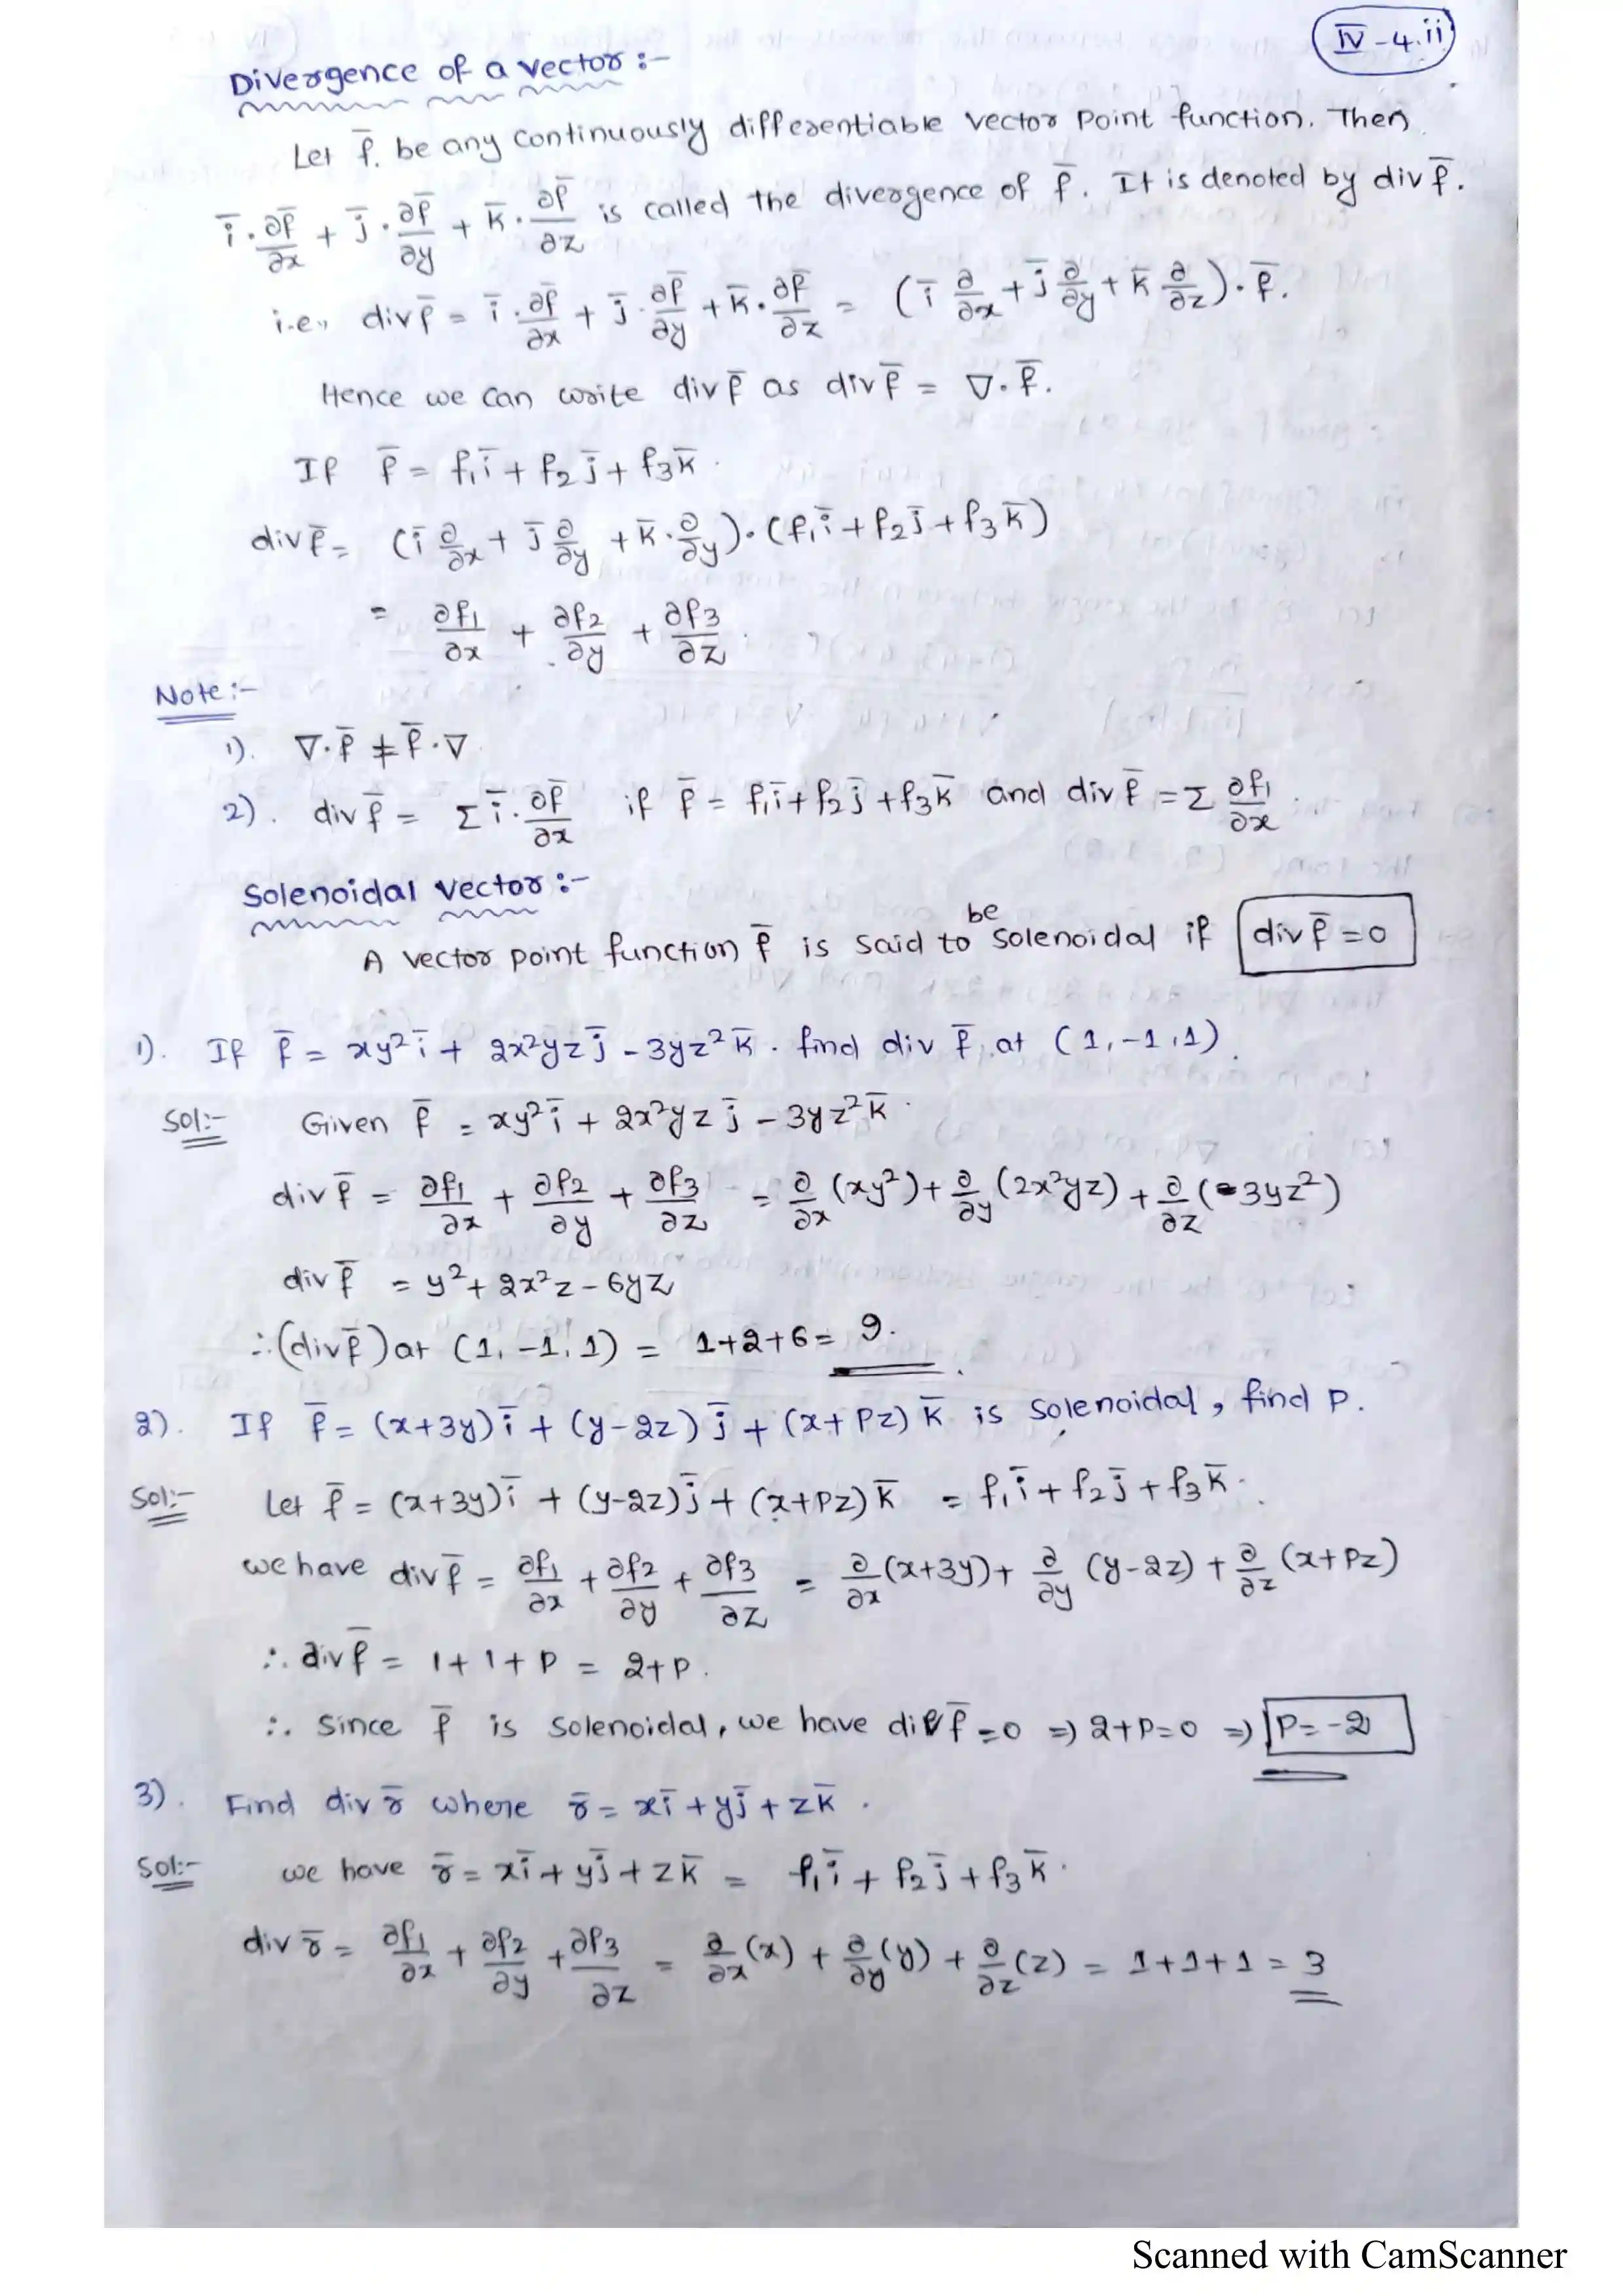 IV-4.ii
Divergence of a vector :-
Let f̄. be any continuously differentiable vector point function. Then
ī·∂f̄/∂x + j̄·∂f̄/∂y + k̄·∂f̄/∂z is called the divergence of f̄. It is denoted by div f̄.
i.e., div f̄ = ī·∂f̄/∂x + j̄·∂f̄/∂y + k̄·∂f̄/∂z = (ī ∂/∂x + j̄ ∂/∂y + k̄ ∂/∂z)·f̄.
Hence we can write div f̄ as div f̄ = ∇·f̄.
If f̄ = f₁ī + f₂j̄ + f₃k̄.
div f̄ = (ī ∂/∂x + j̄ ∂/∂y + k̄·∂/∂y)·(f₁ī + f₂j̄ + f₃k̄)
= ∂f₁/∂x + ∂f₂/∂y + ∂f₃/∂z.
Note :-
1). ∇·f̄ ≠ f̄·∇
2). div f̄ = Σ ī·∂f̄/∂x if f̄ = f₁ī + f₂j̄ + f₃k̄ and div f̄ = Σ ∂f₁/∂x.
Solenoidal vector :-
A vector point function f̄ is said to be solenoidal if div f̄ = 0
1). If f̄ = xy²ī + 2x²yzj̄ - 3yz²k̄. find div f̄ at (1, -1, 1).
Sol:- Given f̄ = xy²ī + 2x²yzj̄ - 3yz²k̄.
div f̄ = ∂f₁/∂x + ∂f₂/∂y + ∂f₃/∂z = ∂/∂x (xy²) + ∂/∂y (2x²yz) + ∂/∂z (-3yz²)
div f̄ = y² + 2x²z - 6yz
∴ (div f̄) at (1, -1, 1) = 1+2+6 = 9.
2). If f̄ = (x+3y)ī + (y-2z)j̄ + (x+Pz)k̄ is solenoidal, find P.
Sol:- Let f̄ = (x+3y)ī + (y-2z)j̄ + (x+Pz)k̄ = f₁ī + f₂j̄ + f₃k̄.
we have div f̄ = ∂f₁/∂x + ∂f₂/∂y + ∂f₃/∂z = ∂/∂x (x+3y) + ∂/∂y (y-2z) + ∂/∂z (x+Pz)
∴ div f̄ = 1+1+P = 2+P.
∴ Since f̄ is solenoidal, we have div f̄ = 0 ⇒ 2+P=0 ⇒ P=-2
3). Find div r̄ where r̄ = xī + yj̄ + zk̄.
Sol:- we have r̄ = xī + yj̄ + zk̄ = f₁ī + f₂j̄ + f₃k̄.
div r̄ = ∂f₁/∂x + ∂f₂/∂y + ∂f₃/∂z = ∂/∂x (x) + ∂/∂y (y) + ∂/∂z (z) = 1+1+1 = 3
Scanned with CamScanner